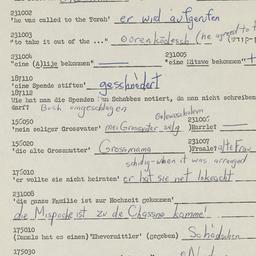 231002
'he was called to the Torah' er wird aufgerufen
231003
"to take it out of the ..." Oorenkodesch (he agreed to
231006
"eine (A)lije bekommen"
231005
"eine Mitzve bekommen"
187110
'eine Spende stiften' geschnodert
187112
Wie hat man die Spenden am Schabbes notiert, da man nicht schreiben
darf? Buch umgeschlagen
156050
'mein seliger Grossvater' mei Grosvater selig
231006
Harrle?
156020
'die alte Grossmutter' Grossmama
231007
Frale? alte Frau
when it was arranged
175010
'er wollte sie nicht heiraten' er hat sie net
231008
'die ganze Familie ist zur Hochzeit gekommen'
die Mispoche ist zu de Chassne komme!
175010
(Damals hat es einen) 'Ehevermittler' (gegeben) Schadschen
175030